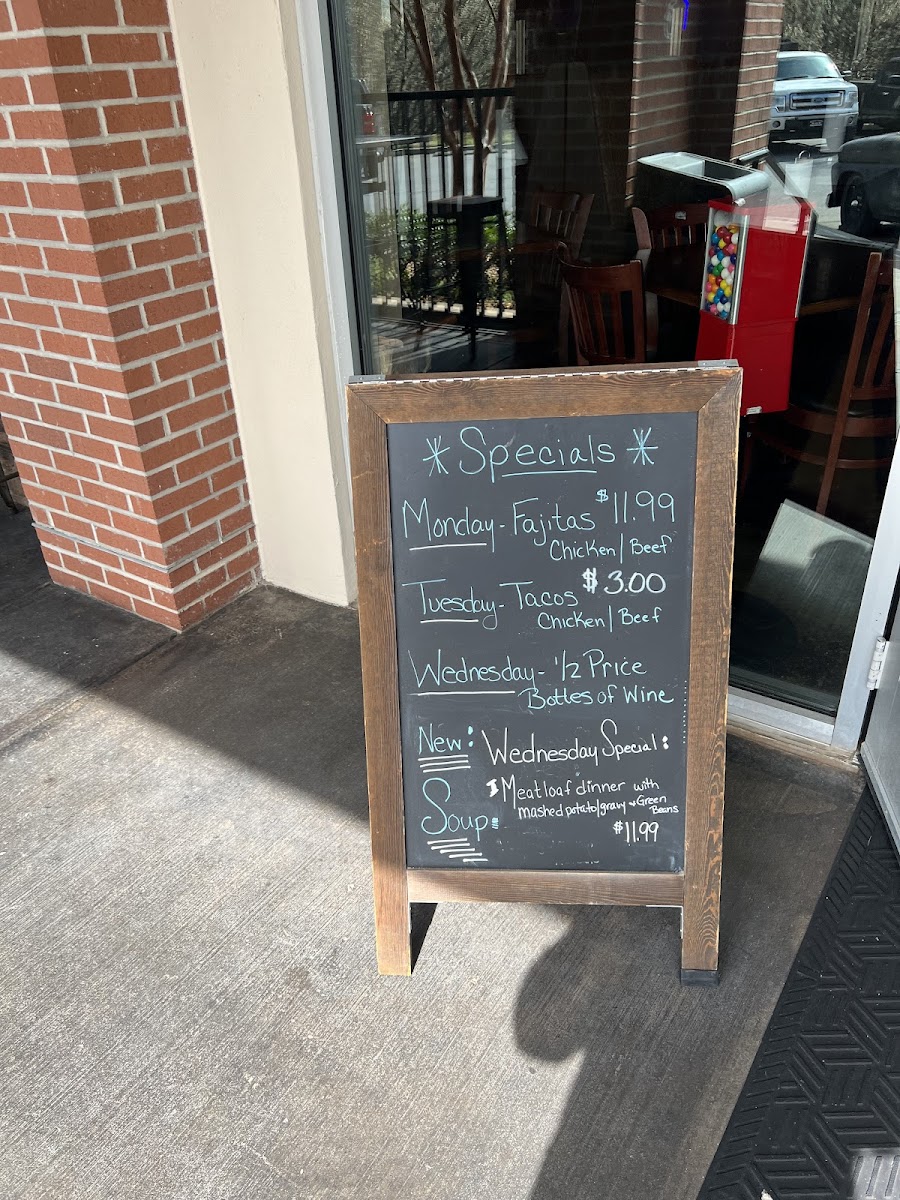 * Specials *
Monday - Fajitas $11.99
Chicken/Beef
Tuesday - Tacos $3.00
Chicken/Beef
Wednesday - 1/2 Price
Bottles of Wine
New: Wednesday Special:
Meatloaf dinner with
mashed potato/gravy + Green
Beans
Soup:
$11.99